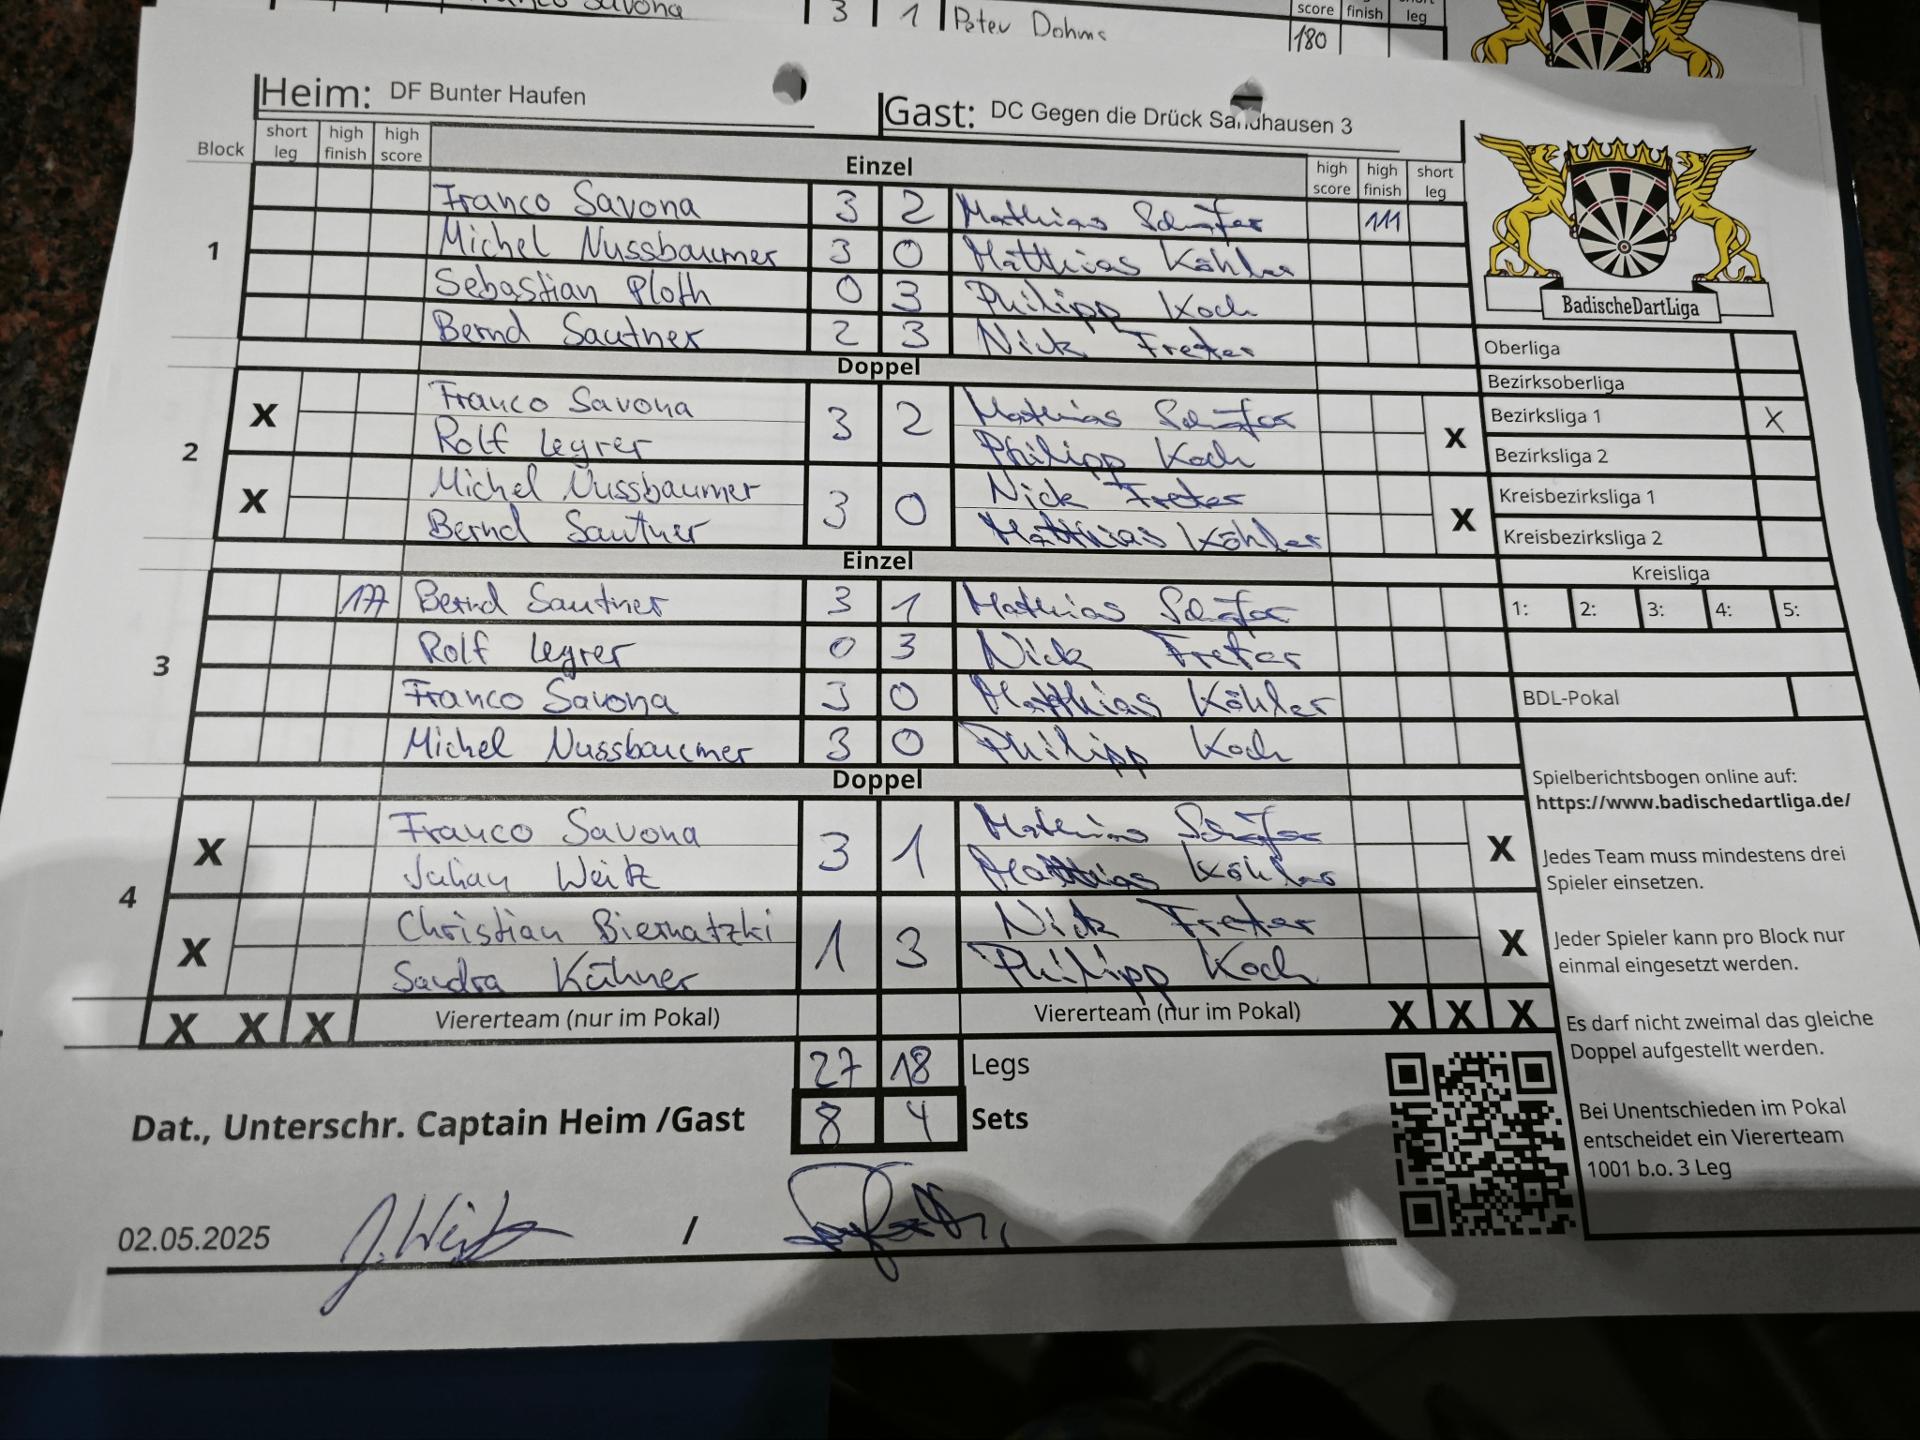 Franco Savona 3 1 Peter Dohms 180
score finish leg
Heim: DF Bunter Haufen Gast: DC Gegen die Drück Sandhausen 3
Block short leg high finish high score Einzel high score high finish short leg
1
Franco Savona 3 2 Mathias Schäfer 111
Michel Nussbaumer 3 0 Matthias Köhler
Sebastian Ploth 0 3 Philipp Koch
Bernd Sautner 2 3 Nick Freter
Doppel
2
X Franco Savona 3 2 Mathias Schäfer X
Rolf Legrer Philipp Koch
X Michel Nussbaumer 3 0 Nick Freter X
Bernd Sautner Matthias Köhler
Einzel
3
177 Bernd Sautner 3 1 Mathias Schäfer
Rolf Legrer 0 3 Nick Freter
Franco Savona 3 0 Matthias Köhler
Michel Nussbaumer 3 0 Philipp Koch
Doppel
4
X Franco Savona 3 1 Mathias Schäfer X
Julian Weitz Matthias Köhler
X Christian Biernatzki 1 3 Nick Freter X
Sandra Kühner Philipp Koch
X X X Viererteam (nur im Pokal) Viererteam (nur im Pokal) X X X
27 18 Legs
Dat., Unterschr. Captain Heim /Gast 8 4 Sets
02.05.2025 J. Weitz /
BadischeDartLiga
Oberliga
Bezirksoberliga
Bezirksliga 1 X
Bezirksliga 2
Kreisbezirksliga 1
Kreisbezirksliga 2
Kreisliga
1: 2: 3: 4: 5:
BDL-Pokal
Spielberichtsbogen online auf:
https://www.badischedartliga.de/
Jedes Team muss mindestens drei
Spieler einsetzen.
Jeder Spieler kann pro Block nur
einmal eingesetzt werden.
Es darf nicht zweimal das gleiche
Doppel aufgestellt werden.
Bei Unentschieden im Pokal
entscheidet ein Viererteam
1001 b.o. 3 Leg